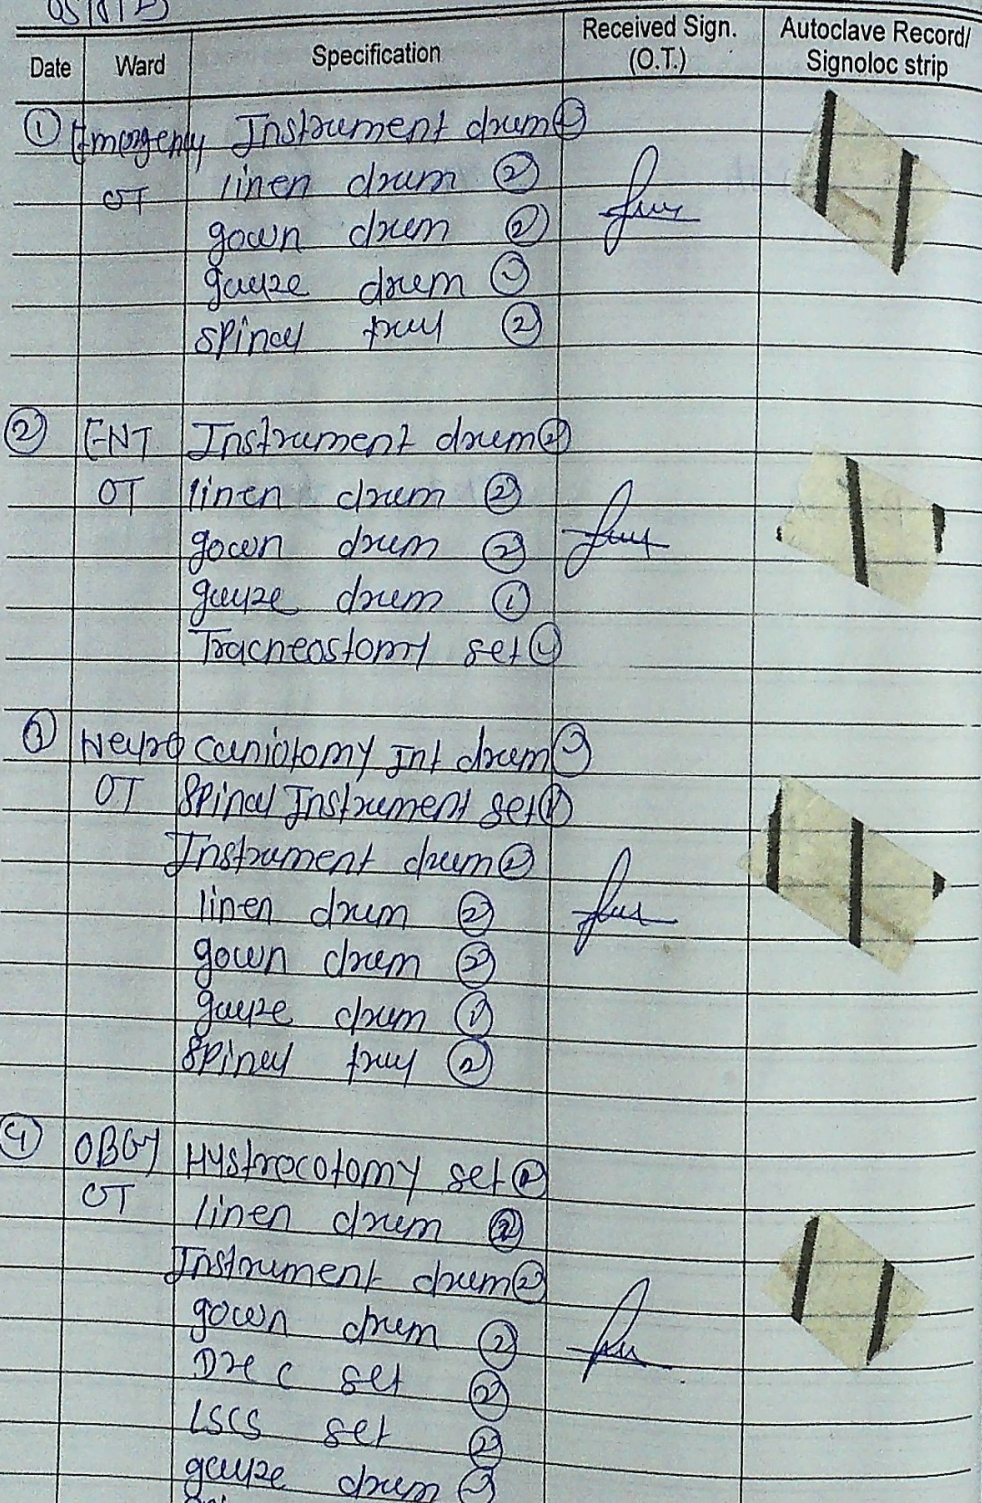 05/8/25
Date Ward Specification Received Sign. (O.T.) Autoclave Record/ Signoloc strip
① Emergency Instrument drum
OT linen drum ②
gown drum ②
gauze drum
spinal tray ②
② ENT Instrument drum ②
OT linen drum ②
gown drum ②
gauze drum ①
Tracheostomy set
③ Neuro Caniotomy Int drum
OT Spinal Instrument set ①
Instrument drum ②
linen drum ②
gown drum ②
gauze drum ①
Spinal tray ②
④ OBGY Hystrecotomy set
OT linen drum ②
Instrument drum ②
gown drum ②
set ②
LSCS set ②
gauze drum